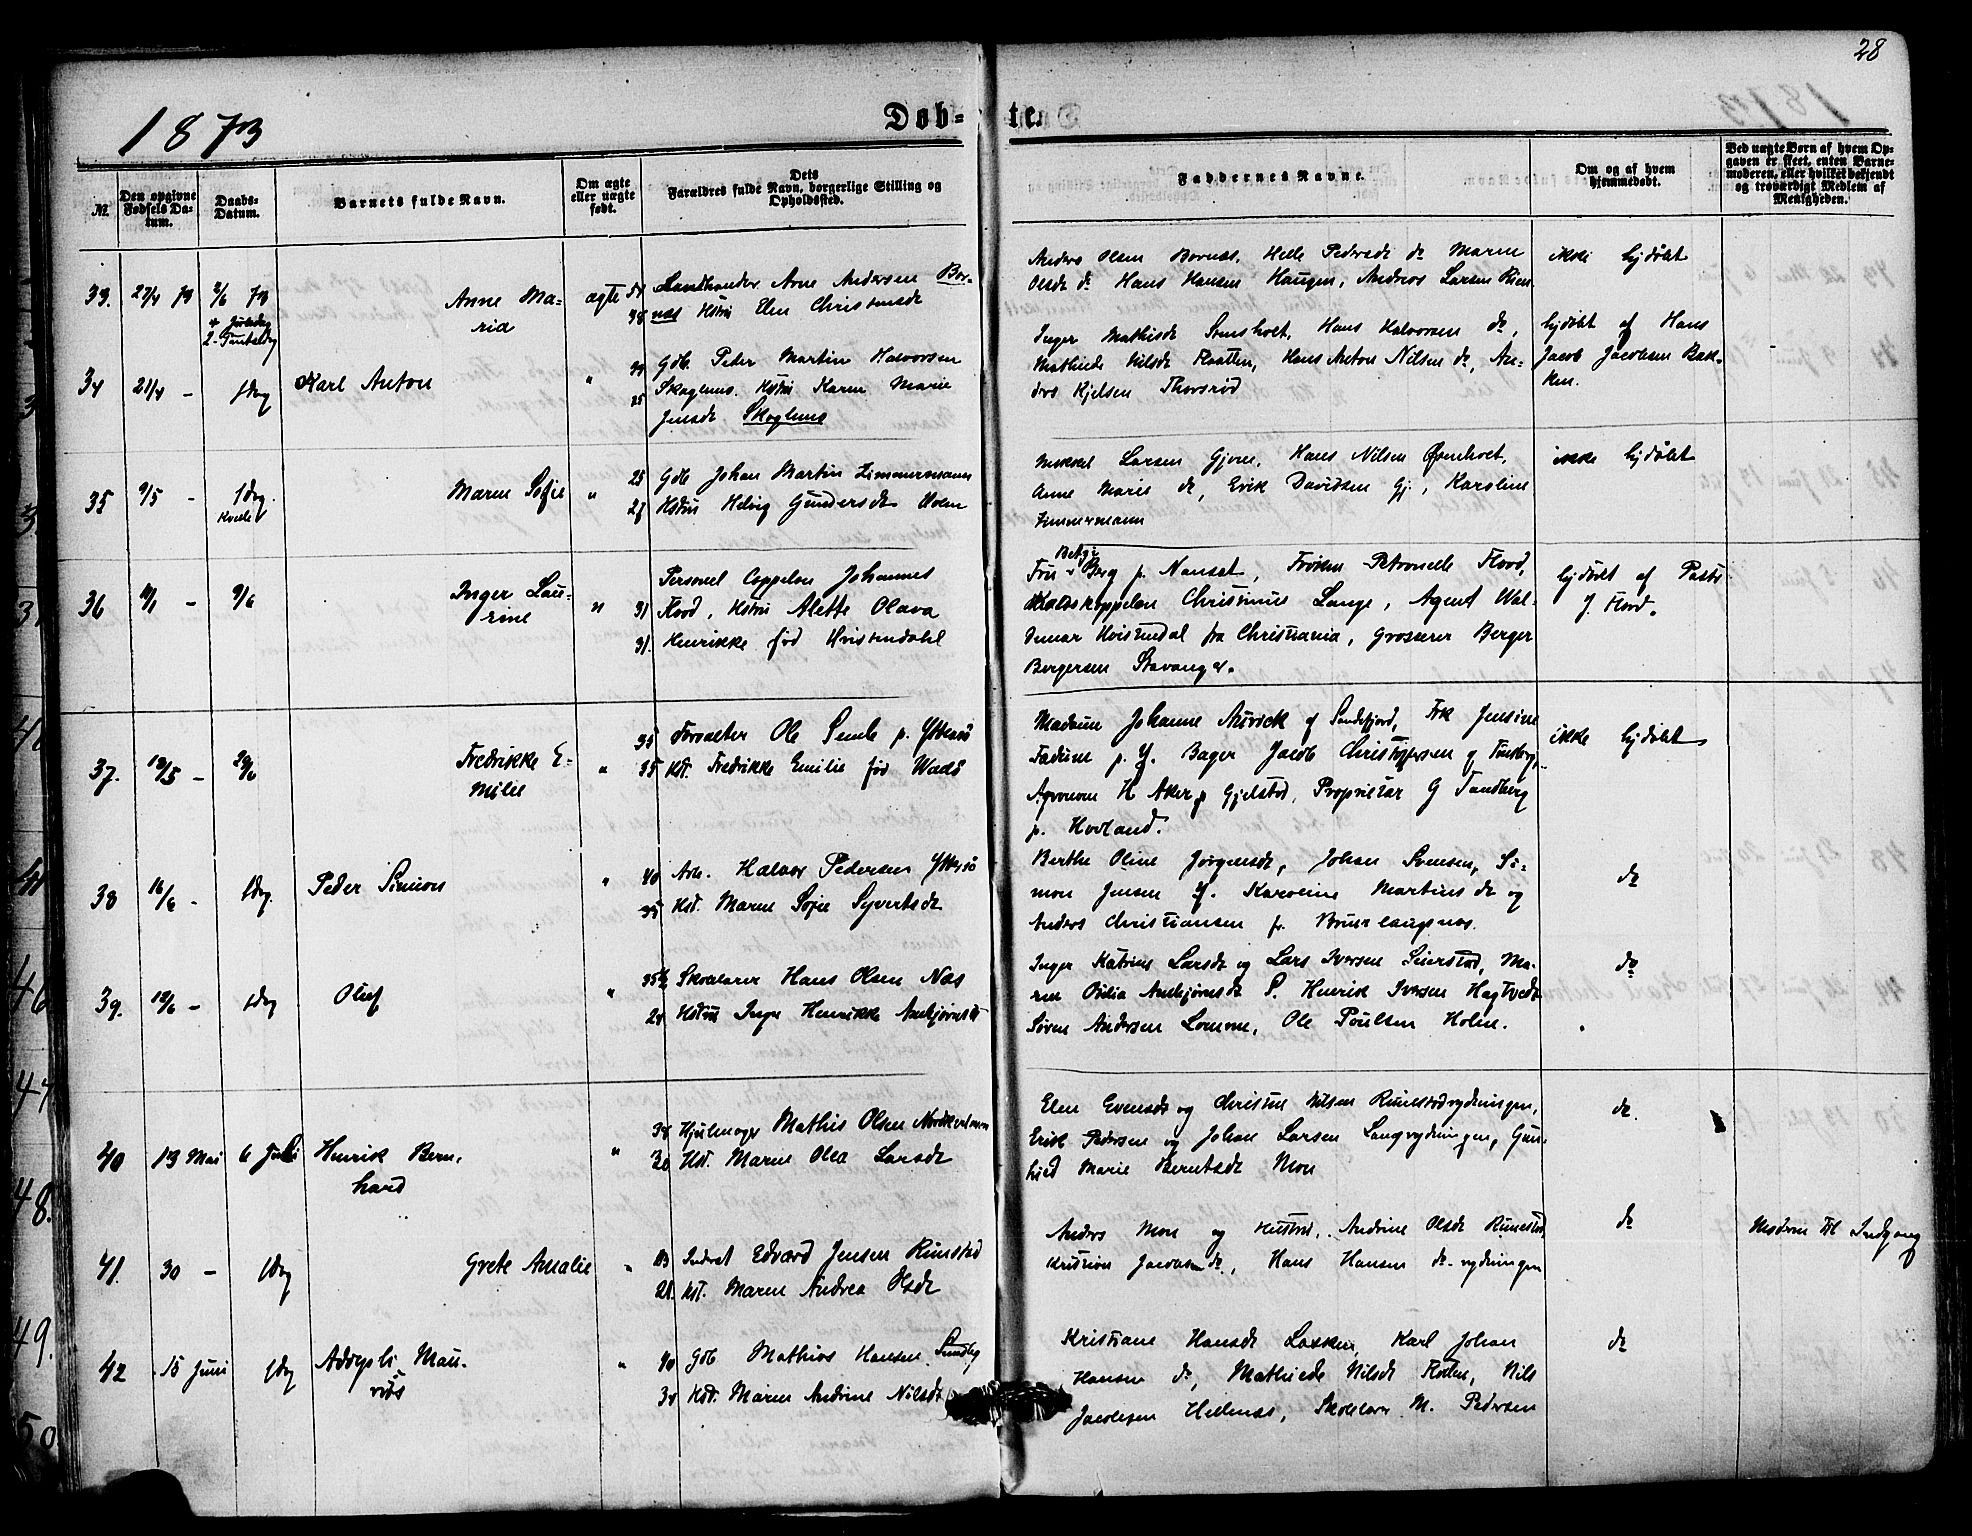 28
1873
Døb-te.
№
Den opgivne Fødsels Datum.
Daabs-Datum.
Barnets fulde Navn.
Om ægte eller uægte født.
Dets Forældres fulde Navn, borgerlige Stilling og Opholdssted.
Faddernes Navne.
Om og af hvem hjemmedøbt.
Ved uægte Børn af hvem Opgaven er skeet, enten Barnemoderen, eller hvilket bekjendt og troværdigt Medlem af Menigheden.
33. 27/4 73 2/6 73 Anne Ma-
ria
ægte
Landhandler Arne Andersen Bor-
næs Hstru Elen Christensdt
38
Anders Olsen Bornæs, Helle Pedersdt do Maren
Olsdt do Hans Hansen Haugen, Andreas Larsen
ikke hjdøbt
2. Pintsedag
34 21/4 - 1dag Karl Anton "
Gdb. Peder Martin Halvorsen
Skoglund. Hstru Karen Marie
25
Jensdt Skoglund
Inger Mathisdt Stensholt, Hans Halvorsen do,
Mathilde Nilsdt Flaatten, Hans Anton Nilsen do, An-
ders Kjelsen Thorsrød
hjdøbt af Hans
Jacob Jacobsen Bak-
ken.
35 9/5 - 1dag. Maren Sofie "
25 Gdb Johan Martin Zimmermann
27 Hstru Helvig Gundersdt Holm
Larsen Gjone, Hans Nilsen Østenholt,
Anne Marie do, Erik Davidsen Gj, Karoline
Zimmermann
ikke hjdøbt
36 - 9/6 Inger Lau-
rine
"
Personel Cappelan Johannes
31 Flood, Hstru Alette Olava
31. Henrikke fød Hvistendahl
Betzi
Fru Berg p. Nanset, Frøken Petronelle Flood,
Christinus Lange, Agent Wal-
demar Hvistendal fra Christiania, Grosserer Berger
Bergersen Stavanger.
hjdøbt af Pastr
J. Flood.
37. 12/5 - 29/6 Fredrikke E-
milie
"
35 Forvalter Ole Semb p. Yttersø
35 Hst. Fredrikke Emilie fød
Madame Johanne Auvick af Sandefjord, Frk Jensine
p. Y. Bager Jacob Christophersen af Tønsberg,
Agronom H Aker p Gjelstad, Proprietær G Tandberg
p. Hovland.
ikke hjdøbt
38 16/6 - 1dag. Peder Simon "
40 Arb. Halvor Pedersen Yttersø
35 Hst. Maren Sofie Syvertsdt
Berthe Oline Jørgensdt, Johan Svensen, Si-
mon Jensen Y. Karoline Martinsdt og
Anders Christiansen p. Brunlaugsnæs.
do
39. 12/6 - 1dag Oluf "
35½ Skolelærer Hans Olsen Næs
24 Hstru Inger Henrikke
Inger Katrine Larsdt og Lars Iversen Seierstad, Ma-
ren Otilia S. Henrik Iversen Hagtvedt
Søren Andersen Lomme, Ole Poulsen Holm.
do
40 13 Mai 6 Juli Henrik Bern-
hard
"
38 Hjulmager Mathis Olsen
30 Hst. Maren Olea Larsdt
Elen Evensdt og Christen Nilsen Rimestadrydningen,
Erik Pedersen og Johan Larsen Langrydningen, Gun-
hild Marie Berntsdt Mon
do.
41. 30 - 1dag Grete Amalie "
23 Inderst Edvard Jensen Rimstad
21. Hst. Maren Andrea Olsdt
Anders Mon og Hustru, Andrine Olsdt Rimestad,
Kristian Jacobsen do, Hans Hansen do-rydningen
do
Moderen til Indgang
42 15 Juni 1dag Mau-
rits
"
40 Gdb Mathias Hansen Sundby
34 Hst. Maren Andrine Nilsdt
Kristiane Hansdt Lakken, Karl Johan
Hansen do, Mathilde Nilsdt Flåten, Nils
Jacobsen Hellenæs, Skolelærer M. Pedersen
do
46
47
48.
49.
50